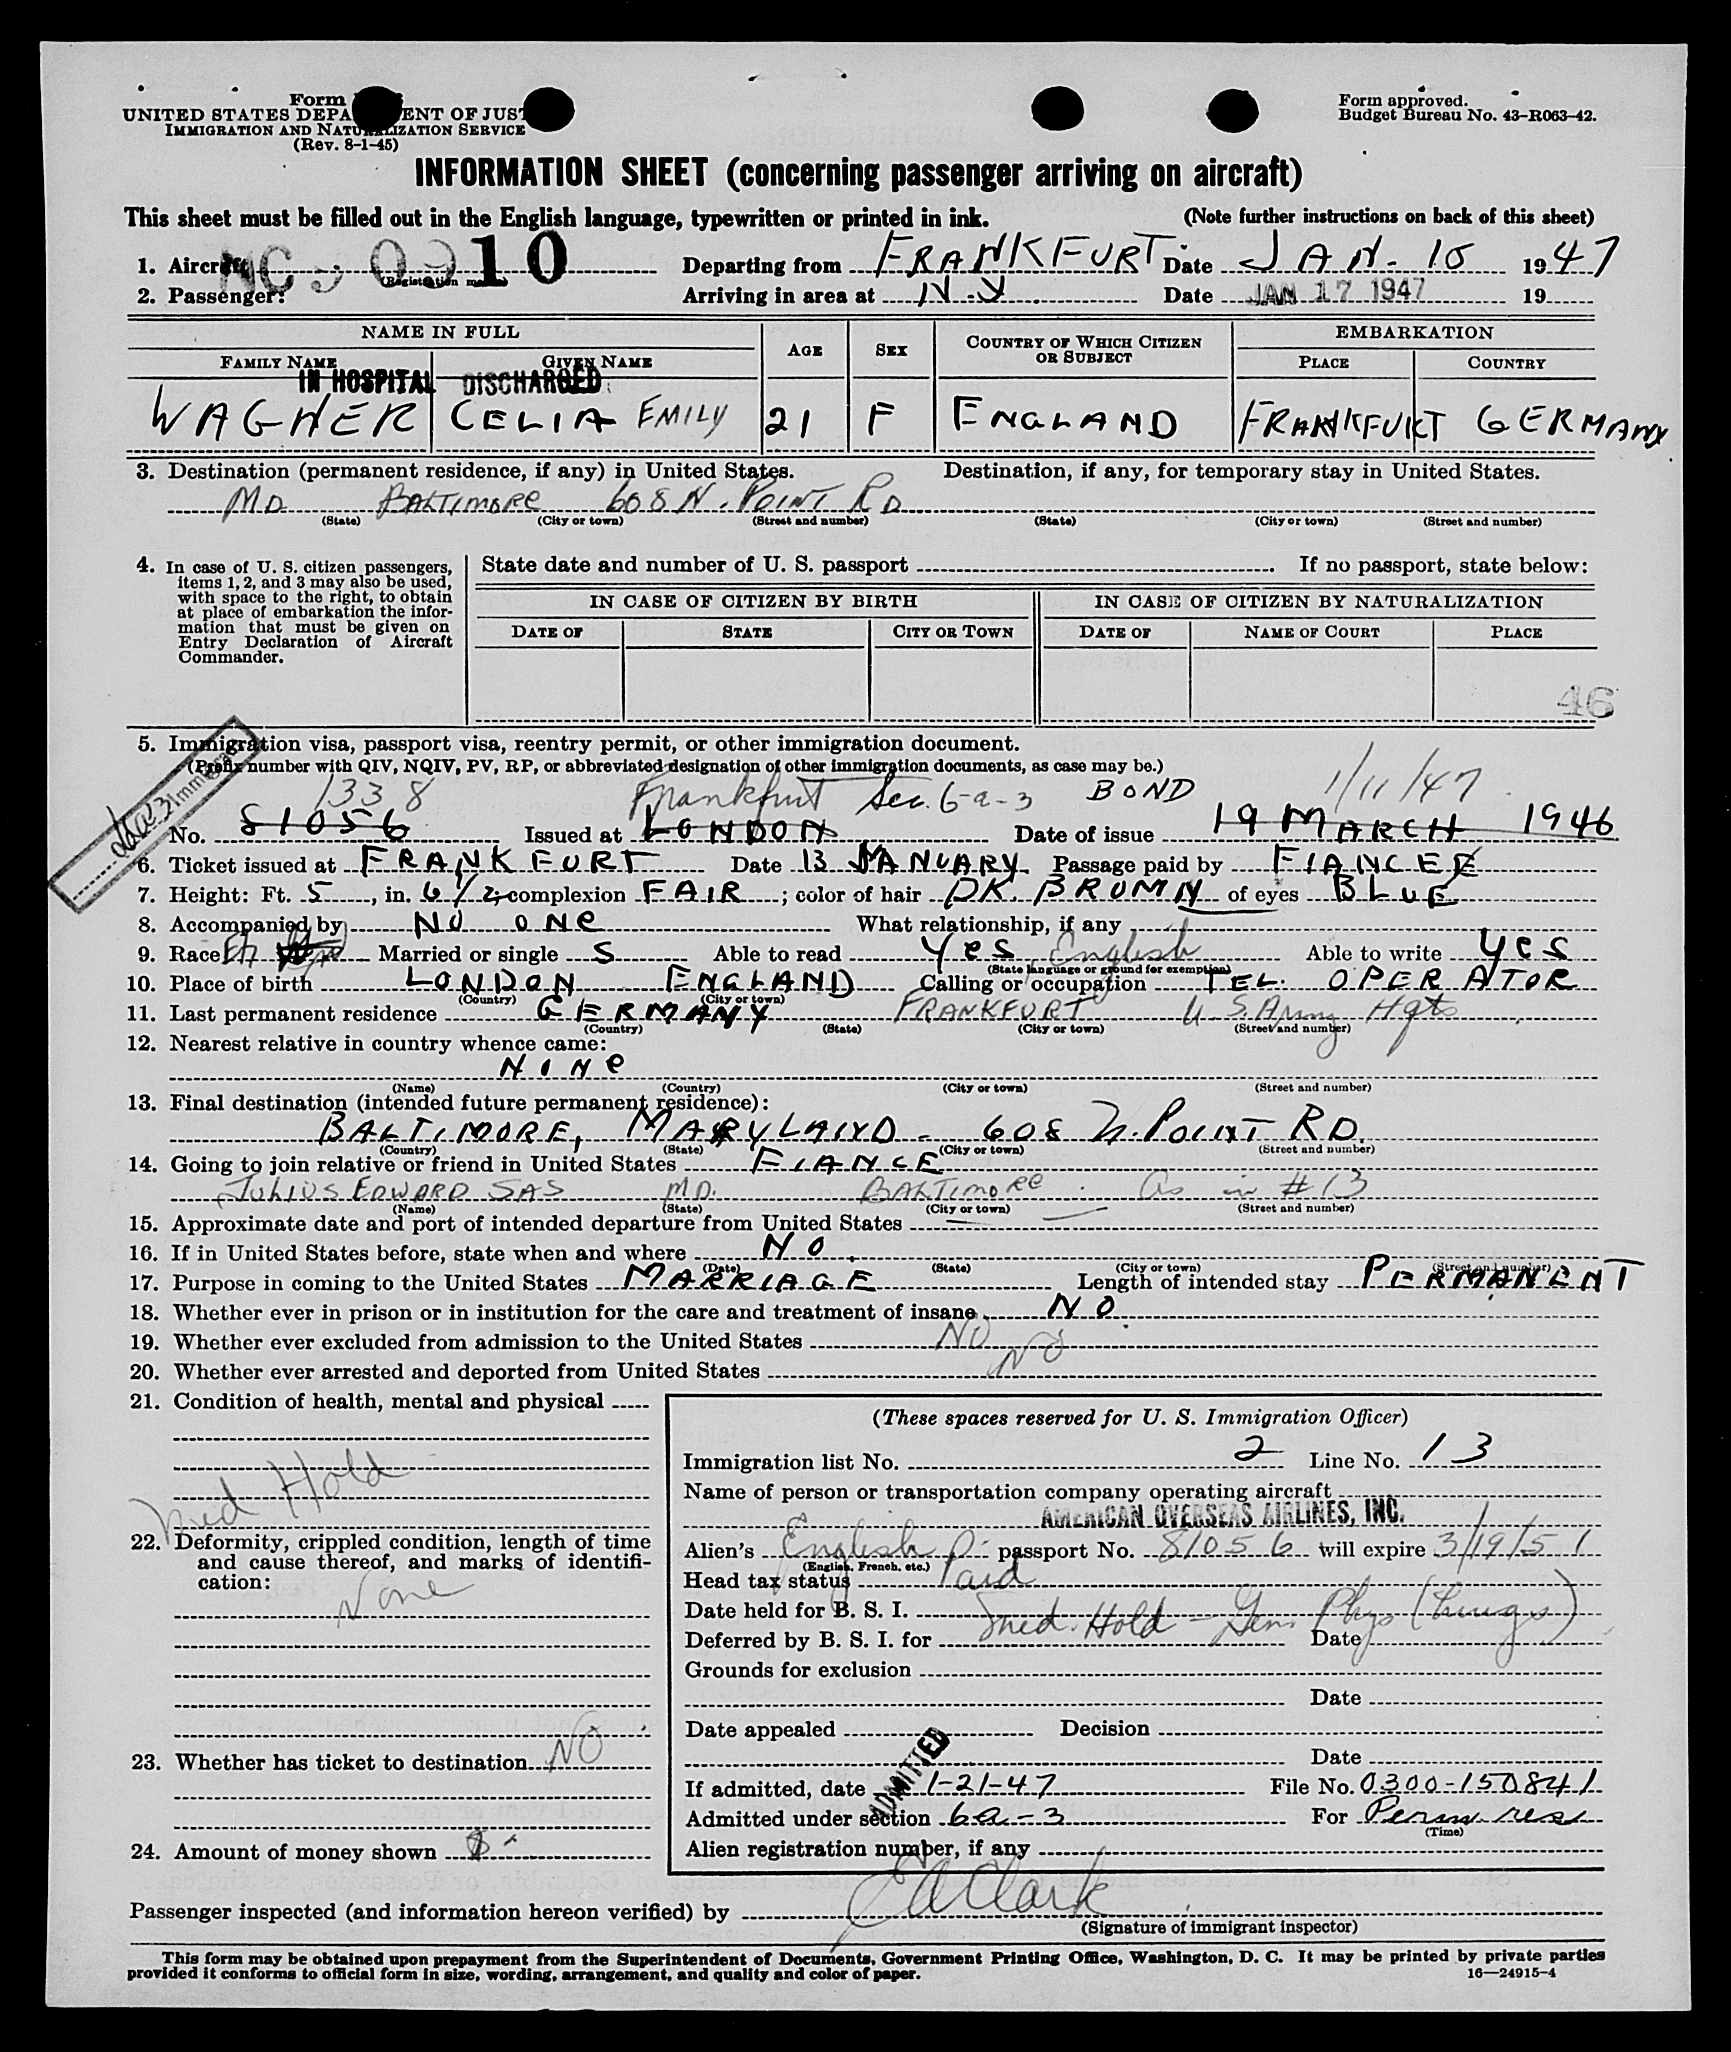 Form
UNITED STATES DEPA ENT OF JUST
IMMIGRATION AND NATURALIZATION SERVICE
(Rev. 8-1-45)
Form approved.
Budget Bureau No. 43-R063-42.
INFORMATION SHEET (concerning passenger arriving on aircraft)
This sheet must be filled out in the English language, typewritten or printed in ink. (Note further instructions on back of this sheet)
1. Aircraft NC 90910 (Registration marks) Departing from FRANKFURT Date JAN. 15 1947
2. Passenger: Arriving in area at N.Y. Date JAN 17 1947 19
NAME IN FULL AGE SEX COUNTRY OF WHICH CITIZEN OR SUBJECT EMBARKATION
FAMILY NAME GIVEN NAME PLACE COUNTRY
IN HOSPITAL DISCHARGED
WAGHER CELIA EMILY 21 F ENGLAND FRANKFURT GERMANY
3. Destination (permanent residence, if any) in United States. Destination, if any, for temporary stay in United States.
MD BALTIMORE 608 N. POINT RD
(State) (City or town) (Street and number) (State) (City or town) (Street and number)
4. In case of U. S. citizen passengers, items 1, 2, and 3 may also be used, with space to the right, to obtain at place of embarkation the information that must be given on Entry Declaration of Aircraft Commander.
State date and number of U. S. passport If no passport, state below:
IN CASE OF CITIZEN BY BIRTH IN CASE OF CITIZEN BY NATURALIZATION
DATE OF STATE CITY OR TOWN DATE OF NAME OF COURT PLACE
46
5. Immigration visa, passport visa, reentry permit, or other immigration document.
(Prefix number with QIV, NQIV, PV, RP, or abbreviated designation of other immigration documents, as case may be.)
1338 Frankfurt Sec. 6-a-3 BOND 1/11/47
No. 81056 Issued at LONDON Date of issue 19 MARCH 1946
6. Ticket issued at FRANKFURT Date 13 JANUARY Passage paid by FIANCEE
7. Height: Ft. 5, in. 6 1/2; complexion FAIR; color of hair DK. BROWN of eyes BLUE
8. Accompanied by NO ONE What relationship, if any
9. Race Married or single S Able to read YES English Able to write YES
(State language or ground for exemption)
10. Place of birth LONDON ENGLAND Calling or occupation TEL. OPERATOR
(Country) (City or town)
11. Last permanent residence GERMANY FRANKFURT U.S. Army Hqts
(Country) (State) (City or town) (Street and number)
12. Nearest relative in country whence came:
NONE
(Name) (Country) (City or town) (Street and number)
13. Final destination (intended future permanent residence):
BALTIMORE, MARYLAND - 608 N. POINT RD.
(Country) (State) (City or town) (Street and number)
14. Going to join relative or friend in United States FIANCE
JULIUS EDWARD SAS MD. BALTIMORE. As in #13
(Name) (State) (City or town) (Street and number)
15. Approximate date and port of intended departure from United States —
16. If in United States before, state when and where NO.
(Date) (State) (City or town) (Street and number)
17. Purpose in coming to the United States MARRIAGE Length of intended stay PERMANENT
18. Whether ever in prison or in institution for the care and treatment of insane NO
19. Whether ever excluded from admission to the United States NO
20. Whether ever arrested and deported from United States NO
21. Condition of health, mental and physical
Med Hold
22. Deformity, crippled condition, length of time and cause thereof, and marks of identification:
None
23. Whether has ticket to destination NO
24. Amount of money shown
(These spaces reserved for U. S. Immigration Officer)
Immigration list No. 2 Line No. 13
Name of person or transportation company operating aircraft
AMERICAN OVERSEAS AIRLINES, INC.
Alien's English passport No. 81056 will expire 3/19/51
(English, French, etc.)
Head tax status Paid
Date held for B. S. I.
Med. Hold - Gen. Phys (Lungs)
Deferred by B. S. I. for Date
Grounds for exclusion
Date
Date appealed Decision
Date
ADMITTED
If admitted, date 1-21-47 File No. 0300-150841
Admitted under section 6a-3 For Perm. res
(Time)
Alien registration number, if any
Passenger inspected (and information hereon verified) by EA Clark
(Signature of immigrant inspector)
This form may be obtained upon prepayment from the Superintendent of Documents, Government Printing Office, Washington, D. C. It may be printed by private parties
provided it conforms to official form in size, wording, arrangement, and quality and color of paper.
16—24915-4